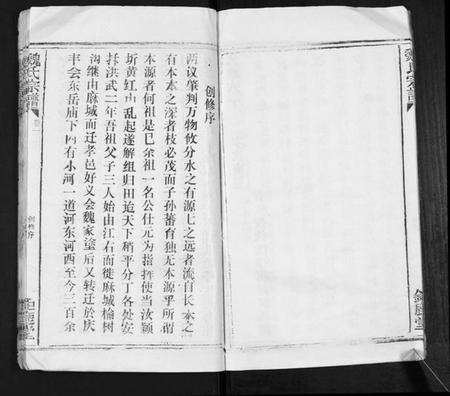 创修序
两议肇判万物攸分水之有源上之远者流自长木之
有本本之深者枝必茂而子孙蕃育独无本源乎所谓
本源者何祖是已余祖一名公仕元为指挥使当汝颍
蕲黄红山乱起遂解组归田迨天下稍平分丁各处安
挿洪武二年吾祖父子三人始由江右而徙麻城榆树
沟继由麻城而迁孝邑好义会魏家塆后又转迁於庆
丰会东岳庙下因有小河一道河东河西至今三百余
魏氏宗谱
创修序
魏氏宗谱